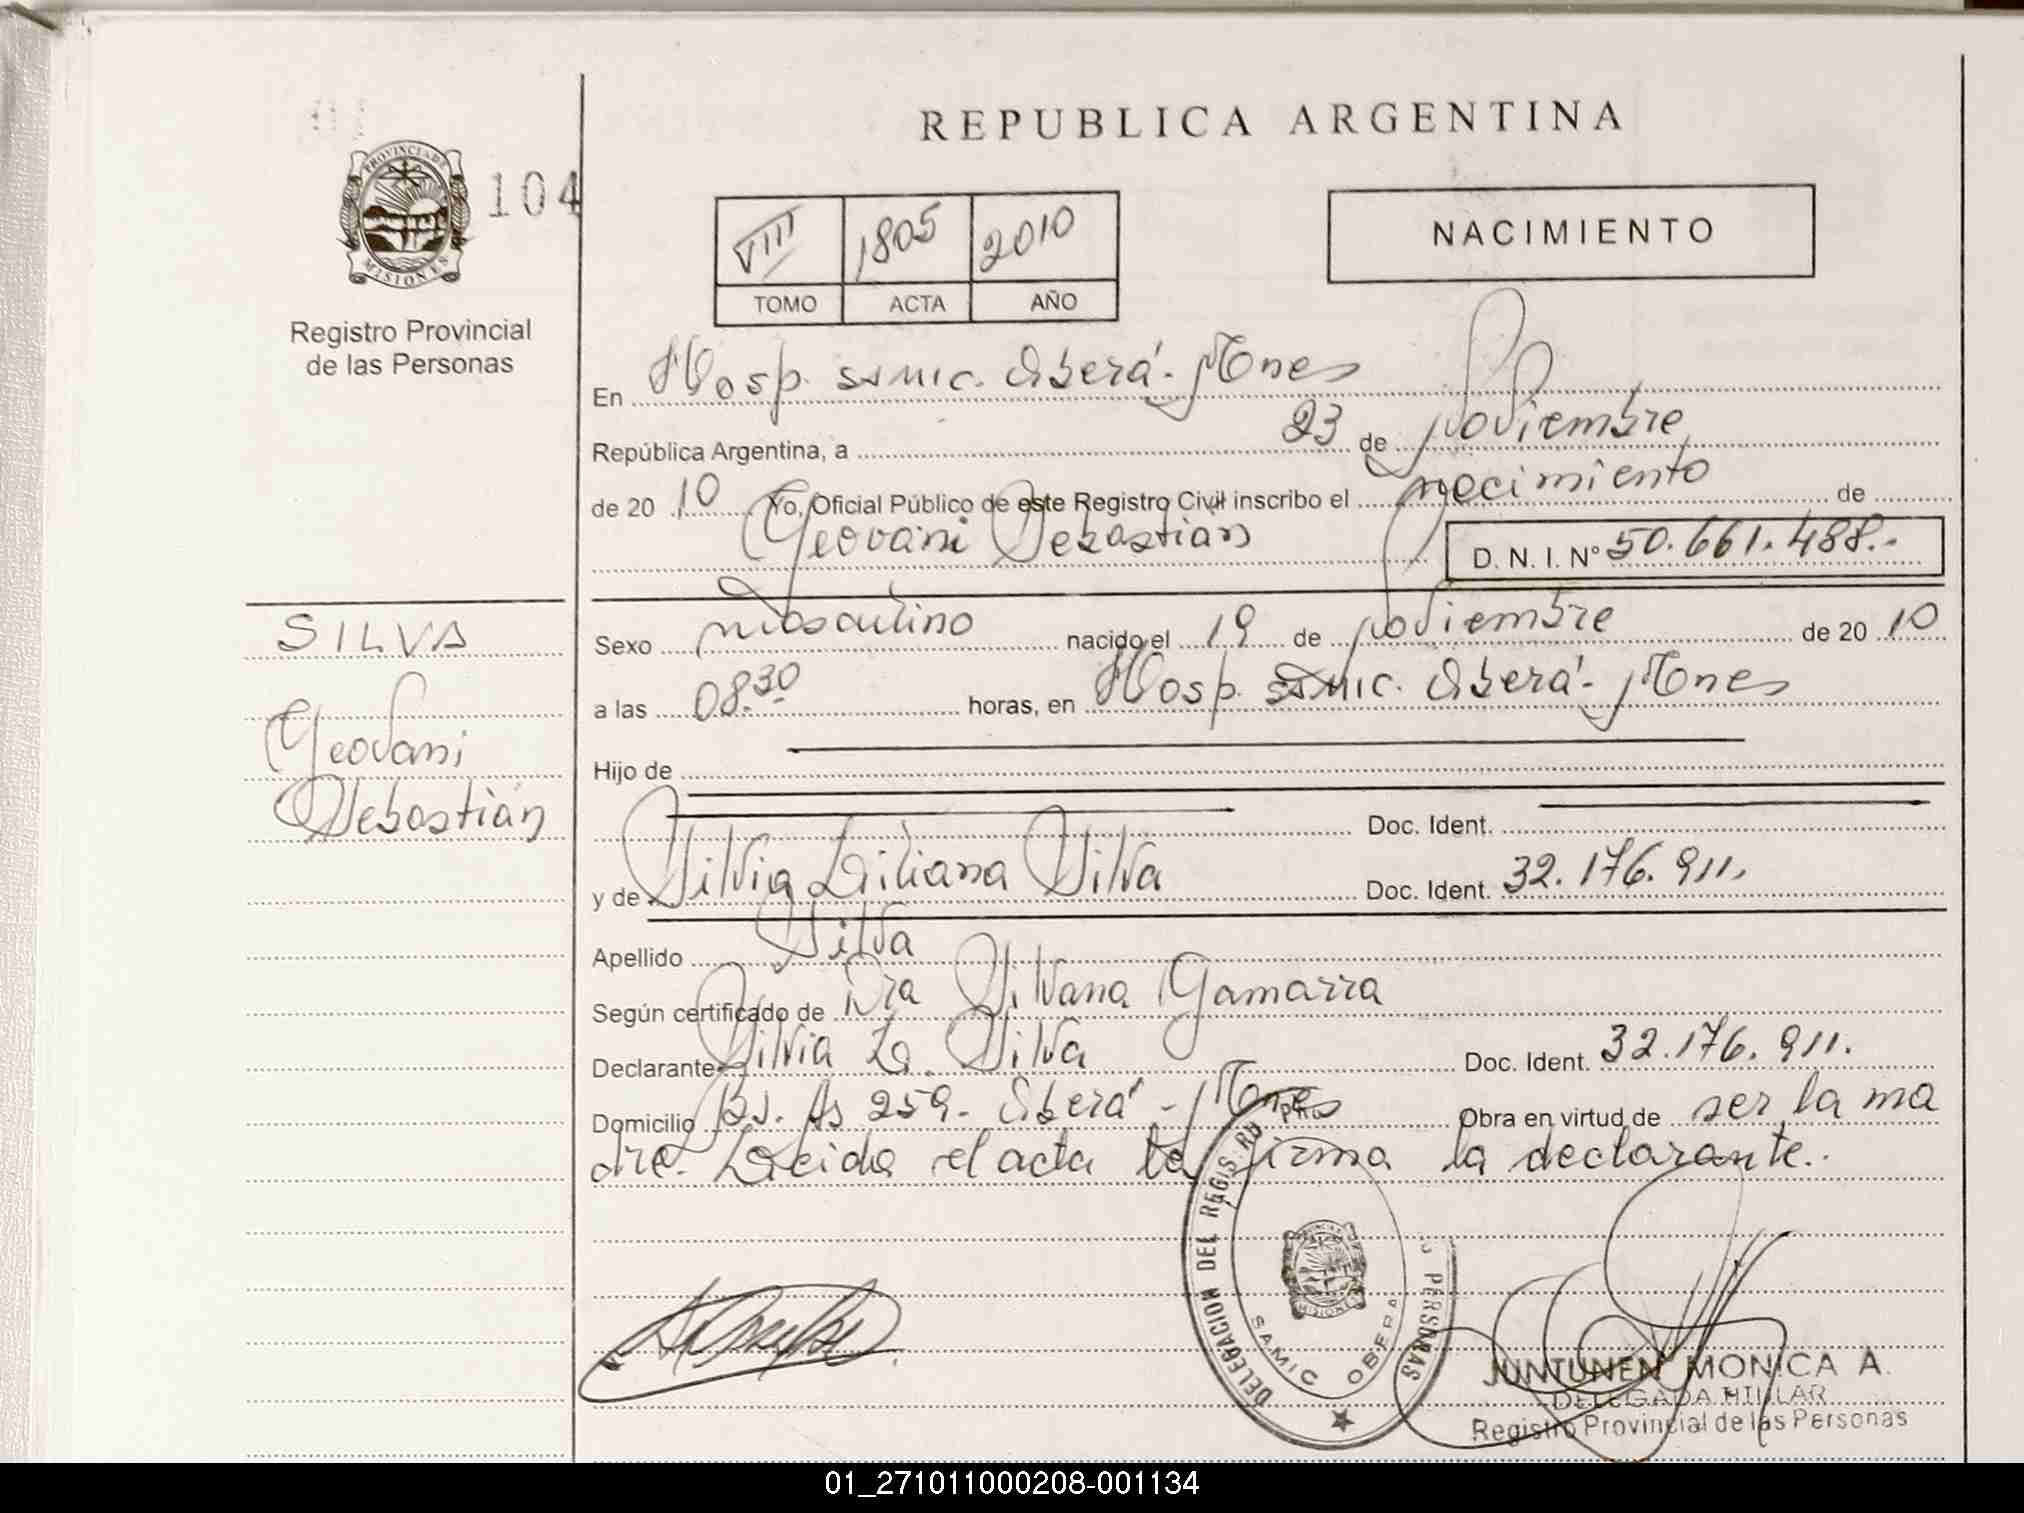 REPUBLICA ARGENTINA
PROVINCIA DE MISIONES
104
Registro Provincial
de las Personas
VIII 1805 2010
TOMO ACTA AÑO
NACIMIENTO
En Hosp. SAMIC. Oberá - Mnes
República Argentina, a 23 de Noviembre
de 20 10 Yo, Oficial Público de este Registro Civil inscribo el nacimiento de
Geovani Sebastián D. N. I. Nº 50.661.488.-
SILVA
Geovani
Sebastián
Sexo masculino nacido el 19 de noviembre de 20 10
a las 08.30 horas, en Hosp. SAMIC. Oberá - Mnes
Hijo de
Doc. Ident.
y de Silvia Liliana Silva Doc. Ident. 32.176.911.
Apellido Silva
Según certificado de Dra Silvana Gamarra
Declarante Silvia L. Silva Doc. Ident. 32.176.911.
Domicilio Bs. As 259 - Oberá - Mnes Obra en virtud de ser la ma
dre. Leida el acta la firma la declarante.
DELEGACION DEL REGIS. PERSONAS
SAMIC OBERA
JUNTUNEN MONICA A.
DELEGADA TITULAR
Registro Provincial de las Personas
01_271011000208-001134